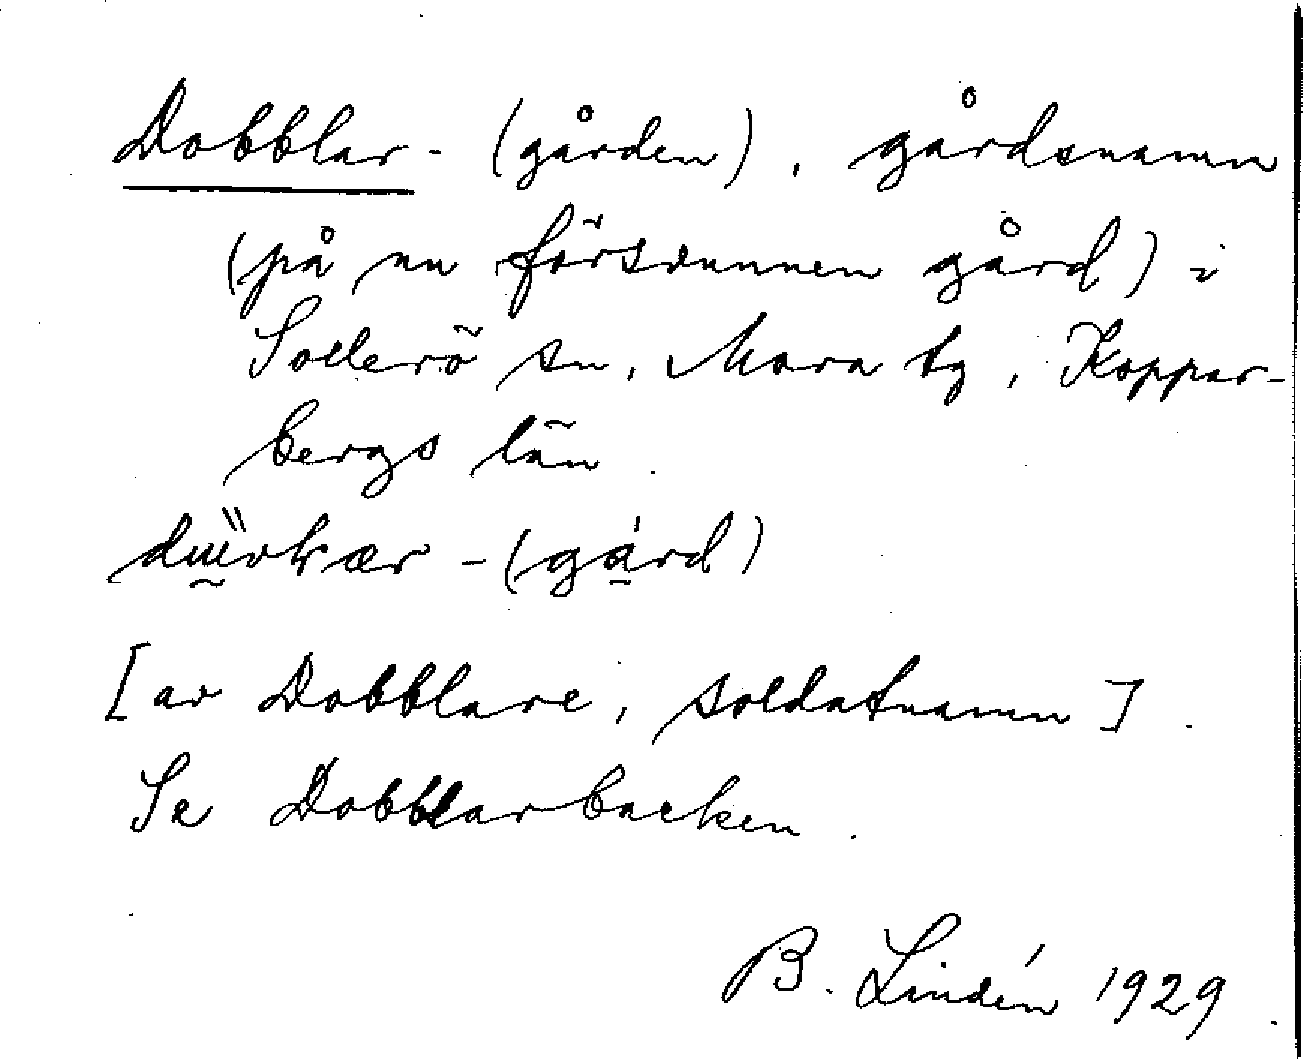 Dobblar- (gården), gårdsnamn
(på nu försvunnen gård) i
Sollerö sn, Mora tg, Koppar-
bergs län.
-(gård)
[av Dobblare, soldatnamn].
Se Dobblarbacken.
B. Lindén 1929